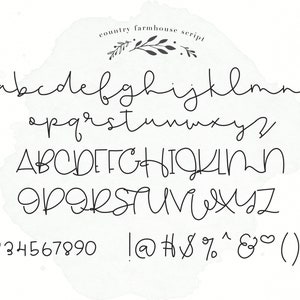 country farmhouse script
abcdefghijklmn
opqrstuvwxyz
ABCDEFGHIJKLMN
OPQRSTUVWXYZ
34567890 !@#$%^&♡()